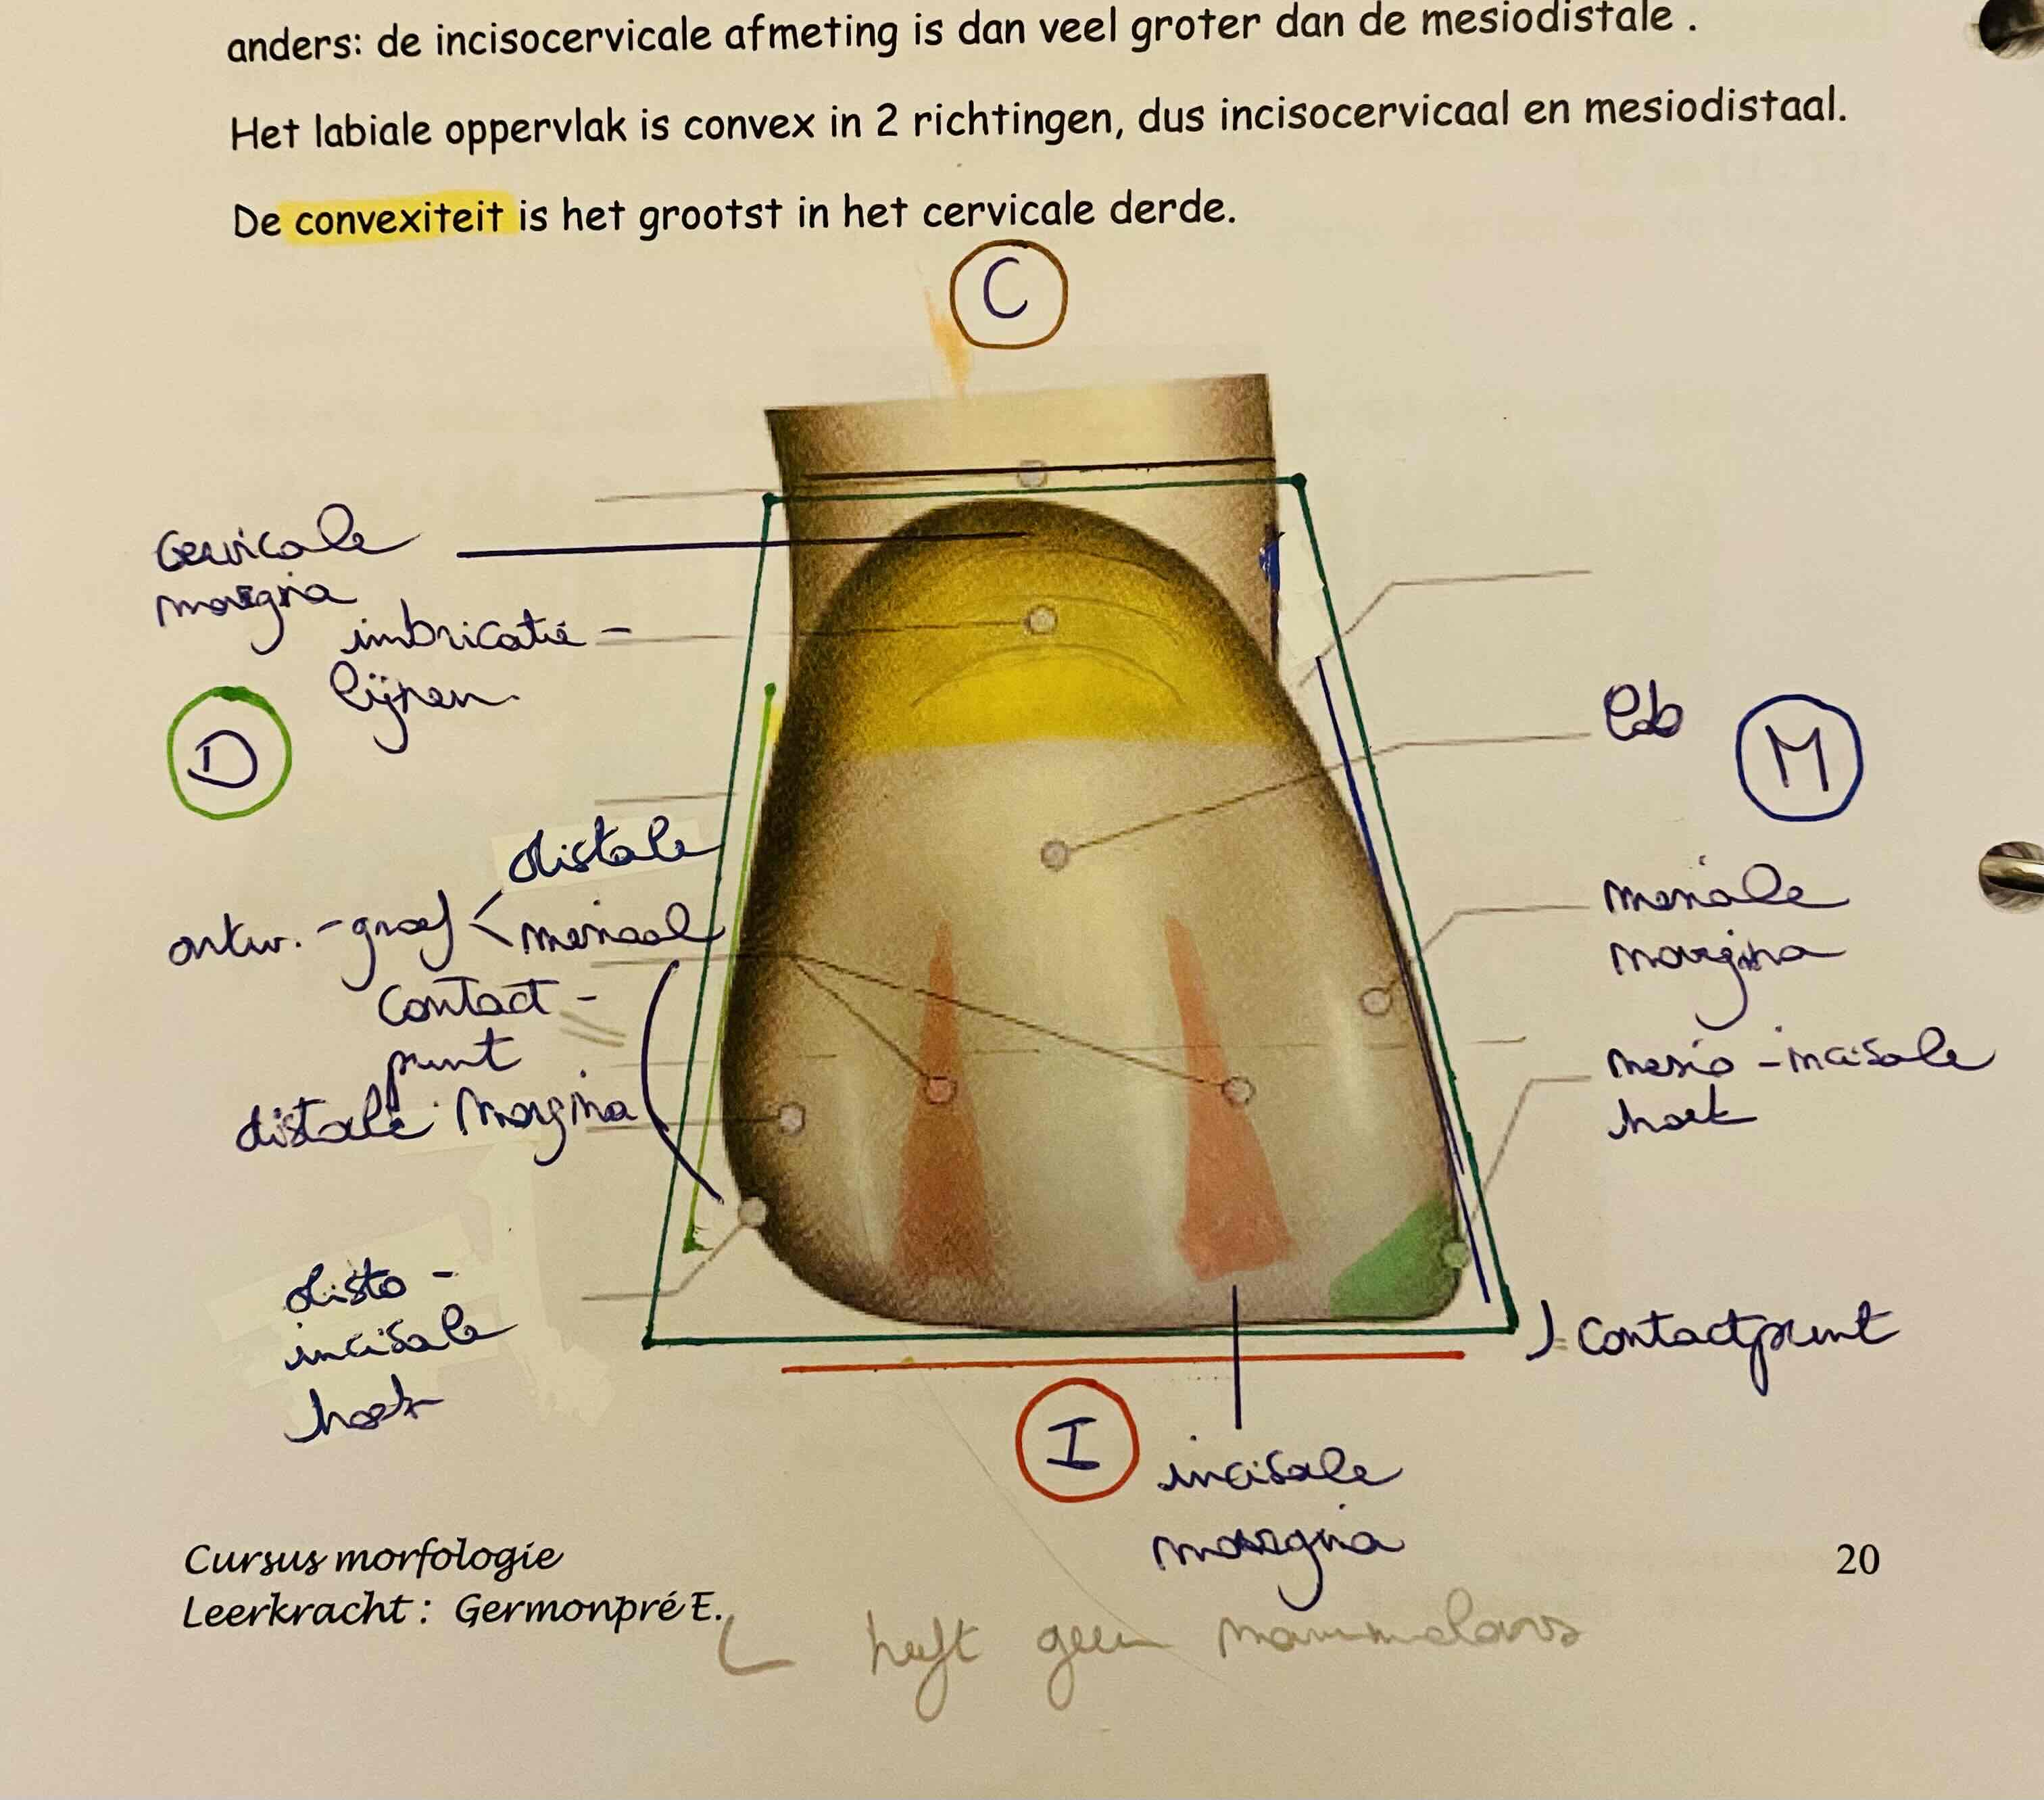 anders: de incisocervicale afmeting is dan veel groter dan de mesiodistale .
Het labiale oppervlak is convex in 2 richtingen, dus incisocervicaal en mesiodistaal.
De convexiteit is het grootst in het cervicale derde.
C
Cervicale
margina
imbricatie -
lijnen.
D
lob
M
distale
ontw. - groef < mesiaal
mesiale
margina
Contact -
punt
distale margina
mesio - incisale
hoek
disto -
incisale
hoek
) contactpunt
I
incisale
margina
Cursus morfologie
20
Leerkracht : Germonpré E.
heeft geen mammelons